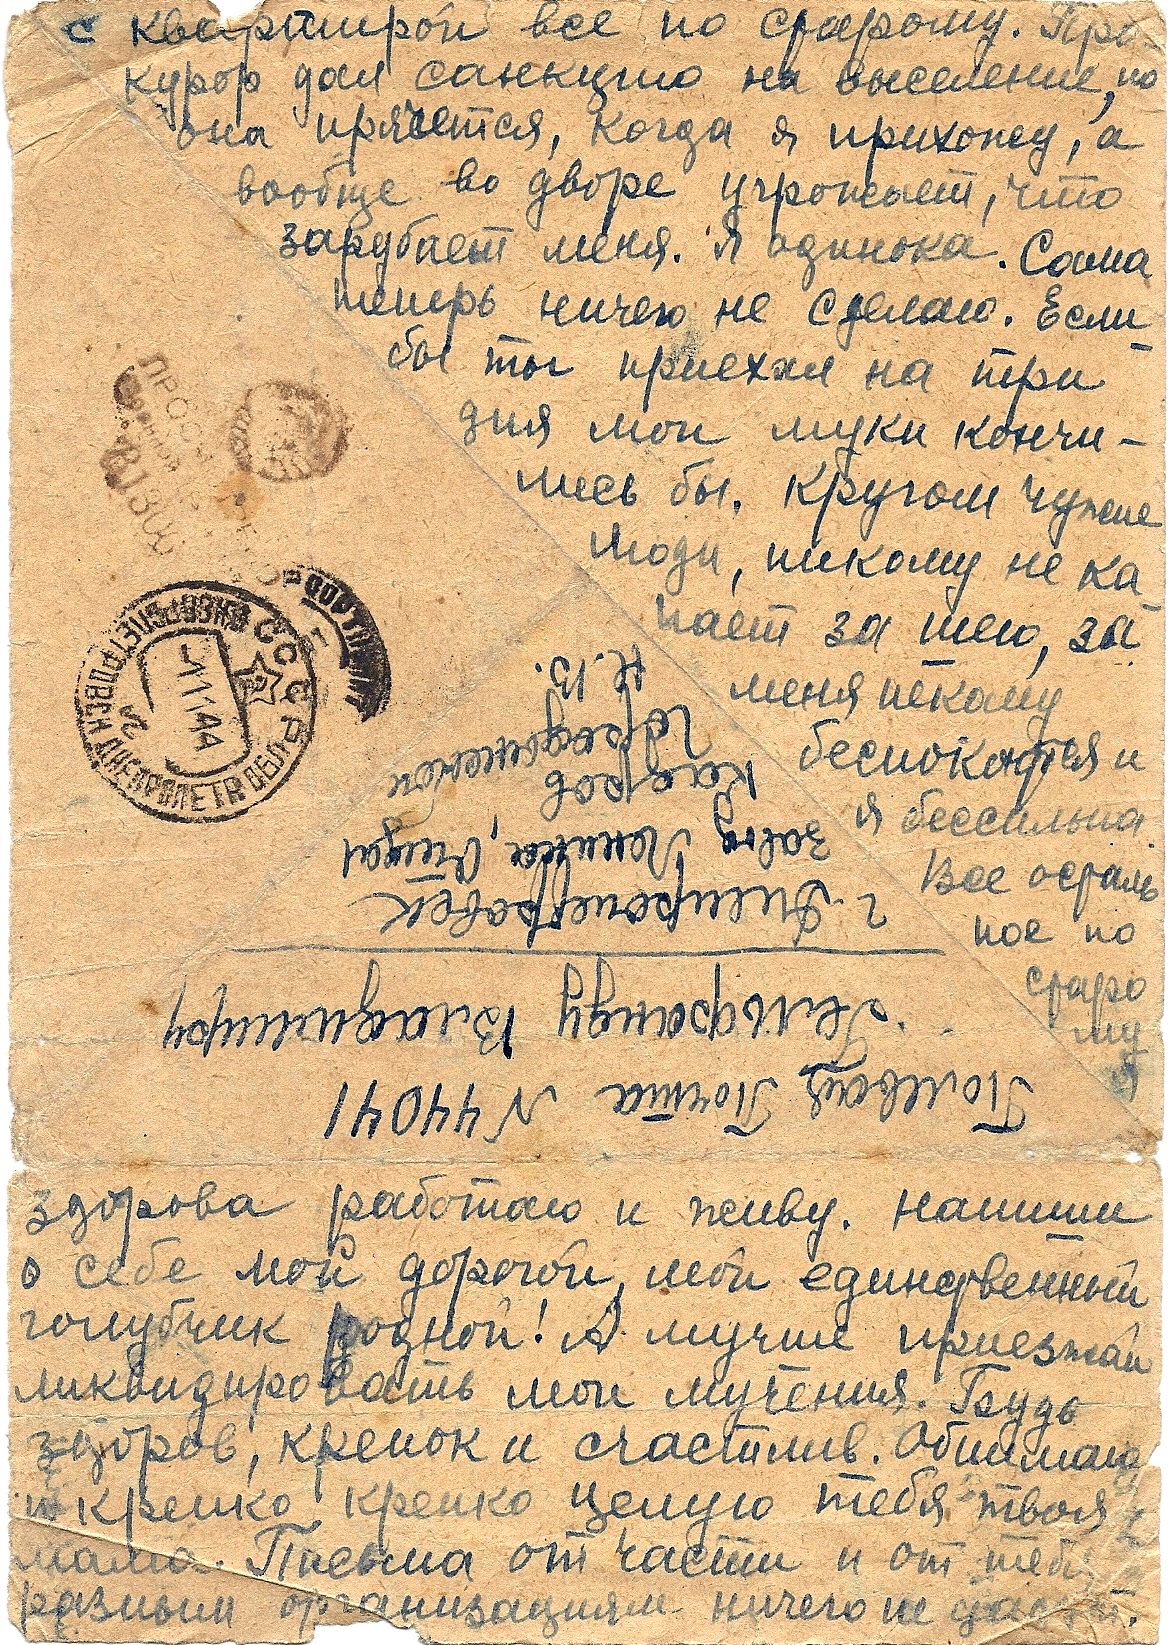 с квартирой все по старому. Про-
курор дал санкцию на выселение, но
она прячется, когда я прихожу, а
вообще во дворе угрожает, что
зарубает меня. Я одинока. Сама
теперь ничего не сделаю. Если
бы ты приехал на три
дня мои муки кончи-
лись бы. Кругом чужие
люди, никому не ка-
пает за шею, за
меня некому
беспокоится и
я бессильна
Все осталь
ное по
старо
му
Я
здорова работаю и живу. Напиши
о себе мой дорогой, мой единственный
голубчик родной! А лучше приезжай
ликвидировать мои мучения. Будь
здоров, крепок и счастлив. Обнимаю
и крепко крепко целую тебя твоя
мама. Письма от части и от тебя
разным организациям ничего не дают.
Полевая Почта N 44041
Гельфанду Владимиру
г. Днепропетровск
завод Ленина, Отдел
кадров
Городынской
Н.В.
СССР
ДНЕПРОПЕТРОВСК ДНЕПРОПЕТР. ОБЛ.
1144